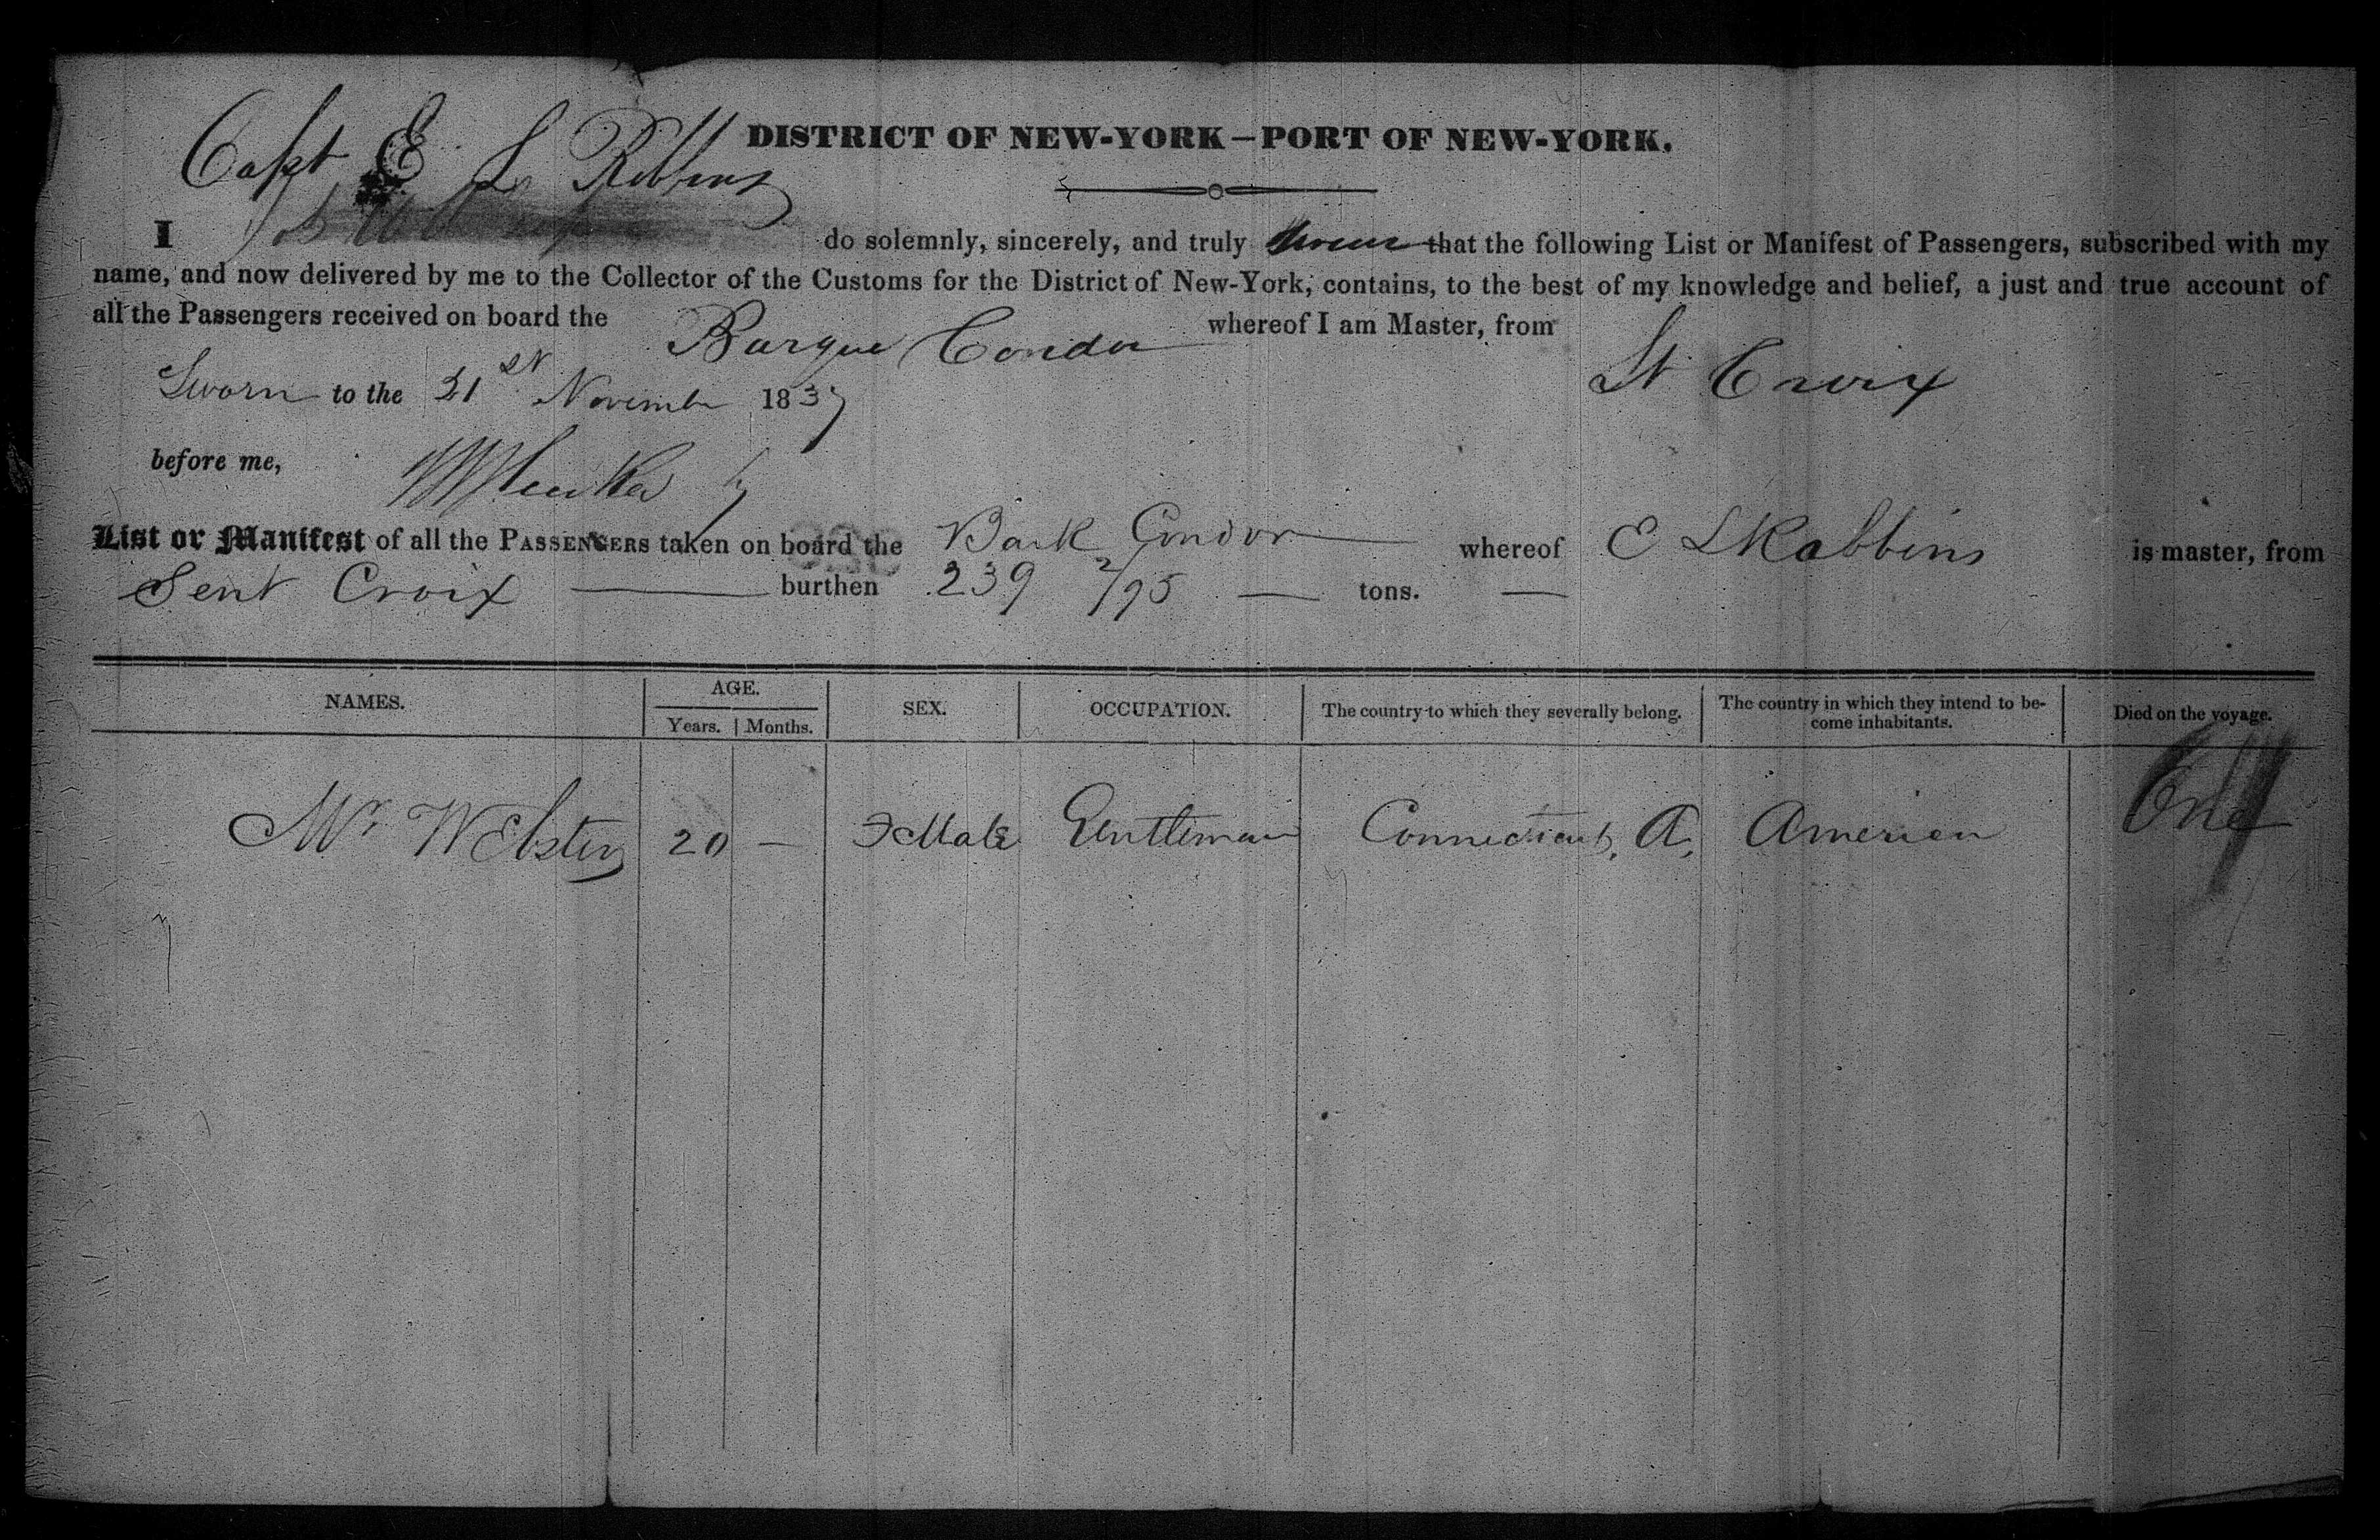 Capt E L Robbins
DISTRICT OF NEW-YORK—PORT OF NEW-YORK.
I do solemnly, sincerely, and truly swear that the following List or Manifest of Passengers, subscribed with my
name, and now delivered by me to the Collector of the Customs for the District of New-York, contains, to the best of my knowledge and belief, a just and true account of
all the Passengers received on board the Barque Condor whereof I am Master, from St Croix
Sworn to the 21st November 1837
before me,
List or Manifest of all the PASSENGERS taken on board the Bark Condor whereof E L Robbins is master, from
Sent Croix burthen 239 2/95 tons.
NAMES. AGE. SEX. OCCUPATION. The country to which they severally belong. The country in which they intend to be-
come inhabitants. Died on the voyage.
Years. Months.
Mr Webster 20 — Male Gentleman Connecticut, A, American One